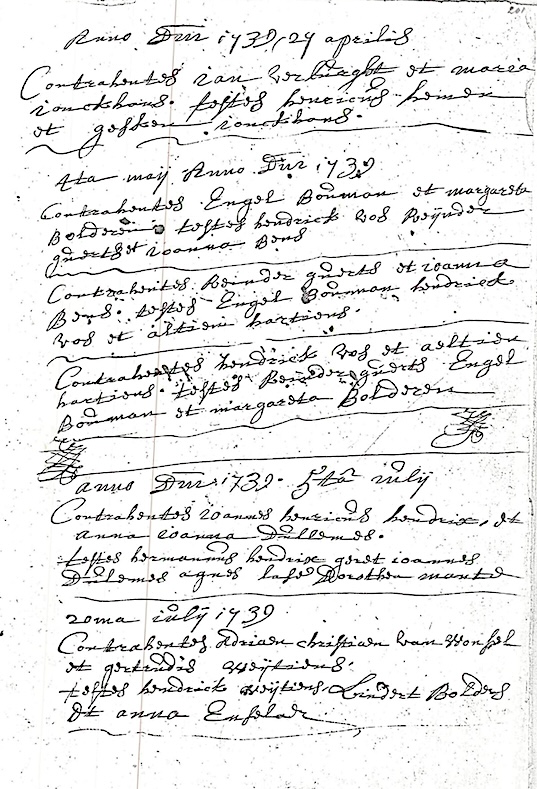 Anno Dni 1739, 29 aprilis
Contrahentes ian verburght et maria
ionckhans. testes henricus hemen
et gesken ionckhans.
4ta maij Anno Dni 1739
Contrahentes Engel Bouman et margareta
Bolderen testes hendrick vos Reijnder
guerts et ioanna Bens
Contrahentes Reinder guerts et ioanna
Bens. testes Engel Bouman hendrick
vos et altien hartiens.
Contrahentes hendrick vos et aeltien
hartiens. testes Reinder guerts Engel
Bouman et margareta Bolderen
anno Dni 1739. 5ta iulij
Contrahentes ioannes henricus hendrix, et
anna ioanna Dullemes.
testes hermannus hendrix geret ioannes
Dulemes agnes Dorothea
20ma iulij 1739
Contrahentes Adriaen christiaen van
et gertrudis weijtiens.
testes hendrick weijtiens. Lindert Bolders
et anna